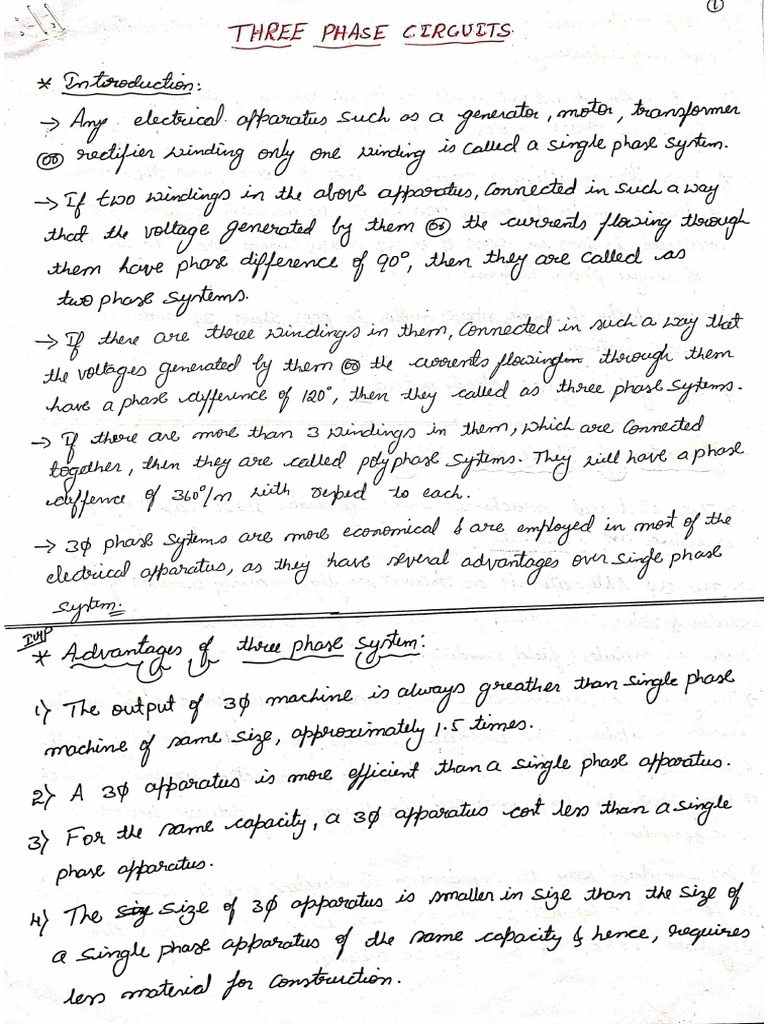 ①
THREE PHASE CIRCUITS.
* Introduction:
→ Any electrical apparatus such as a generator, motor, transformer
(or) rectifier winding only one winding is called a single phase system.
→ If two windings in the above apparatus, connected in such a way
that the voltage generated by them (or) the currents flowing through
them have phase difference of 90°, then they are called as
two phase systems.
→ If there are three windings in them, connected in such a way that
the voltages generated by them (or) the currents flowing through them
have a phase difference of 120°, then they called as three phase systems.
→ If there are more than 3 windings in them, which are connected
together, then they are called polyphase systems. They will have a phase
diffence of 360°/n with respect to each.
→ 3φ phase systems are more economical & are employed in most of the
electrical apparatus, as they have several advantages over single phase
system.
IMP
* Advantages of three phase system:
1) The output of 3φ machine is always greather than single phase
machine of same size, approximately 1.5 times.
2) A 3φ apparatus is more efficient than a single phase apparatus.
3) For the same capacity, a 3φ apparatus cost less than a single
phase apparatus.
4) The size of 3φ apparatus is smaller in size than the size of
a single phase apparatus of the same capacity & hence, requires
less material for construction.